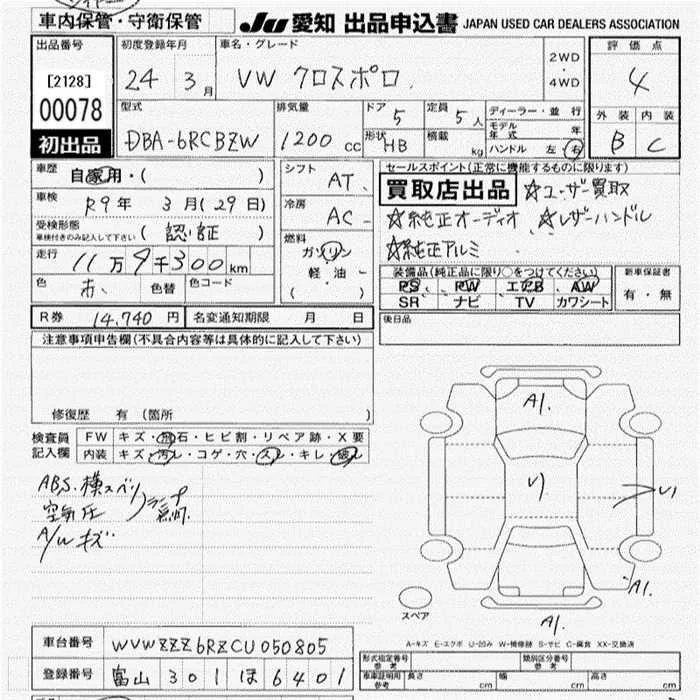 車内保管・守衛保管
JU 愛知 出品申込書 JAPAN USED CAR DEALERS ASSOCIATION
出品番号
[2128]
00078
初出品
初度登録年月
24 3月
車名・グレード
VW クロスポロ
2WD
・
4WD
評価点
4
外装 内装
B C
型式
DBA-6RCBZW
排気量
1200 cc
ドア 5
形状 HB
定員 5人
積載 kg
ディーラー・並行
モデル年式 年
ハンドル 左 右
車歴 自家用・( )
車検 R9年 3月(29日)
受検形態
車検付きのみ記入して下さい
(認証)
走行 11万9千300km
色 赤 色替 色コード
シフト AT
冷房 AC
燃料
ガソリン
軽・油
( )
セールスポイント(正常に機能するものに限ります)
買取店出品 ☆ユーザー買取
☆純正オーディオ ☆レザーハンドル
☆純正アルミ
装備品(純正品に限り○をつけてください)
PS PW エアB AW
SR ナビ TV カワシート
新車保証書
有・無
R券 14,740円 名変通知期限 月 日
後日品
注意事項申告欄(不具合内容等は具体的に記入して下さい)
修復歴 有(箇所 )
検査員
記入欄
FW キズ・飛石・ヒビ割・リペア跡・X要
内装 キズ・汚レ・コゲ・穴・スレ・キレ・破レ
ABS.横スベリ
空気圧
ランプ点灯.
A/W キズ
A1.
U)
U1
A1.
A1.
スペア
A-キズ E-エクボ U-凹み W-補修跡 S-サビ C-腐食 XX-交換済
車台番号 WVWZZZ6RZCU050805
登録番号 富山 301 ほ 6401
形式指定番号
参考
類別区分番号
参考
車庫証明用
参考
長さ cm 幅 cm 高さ cm